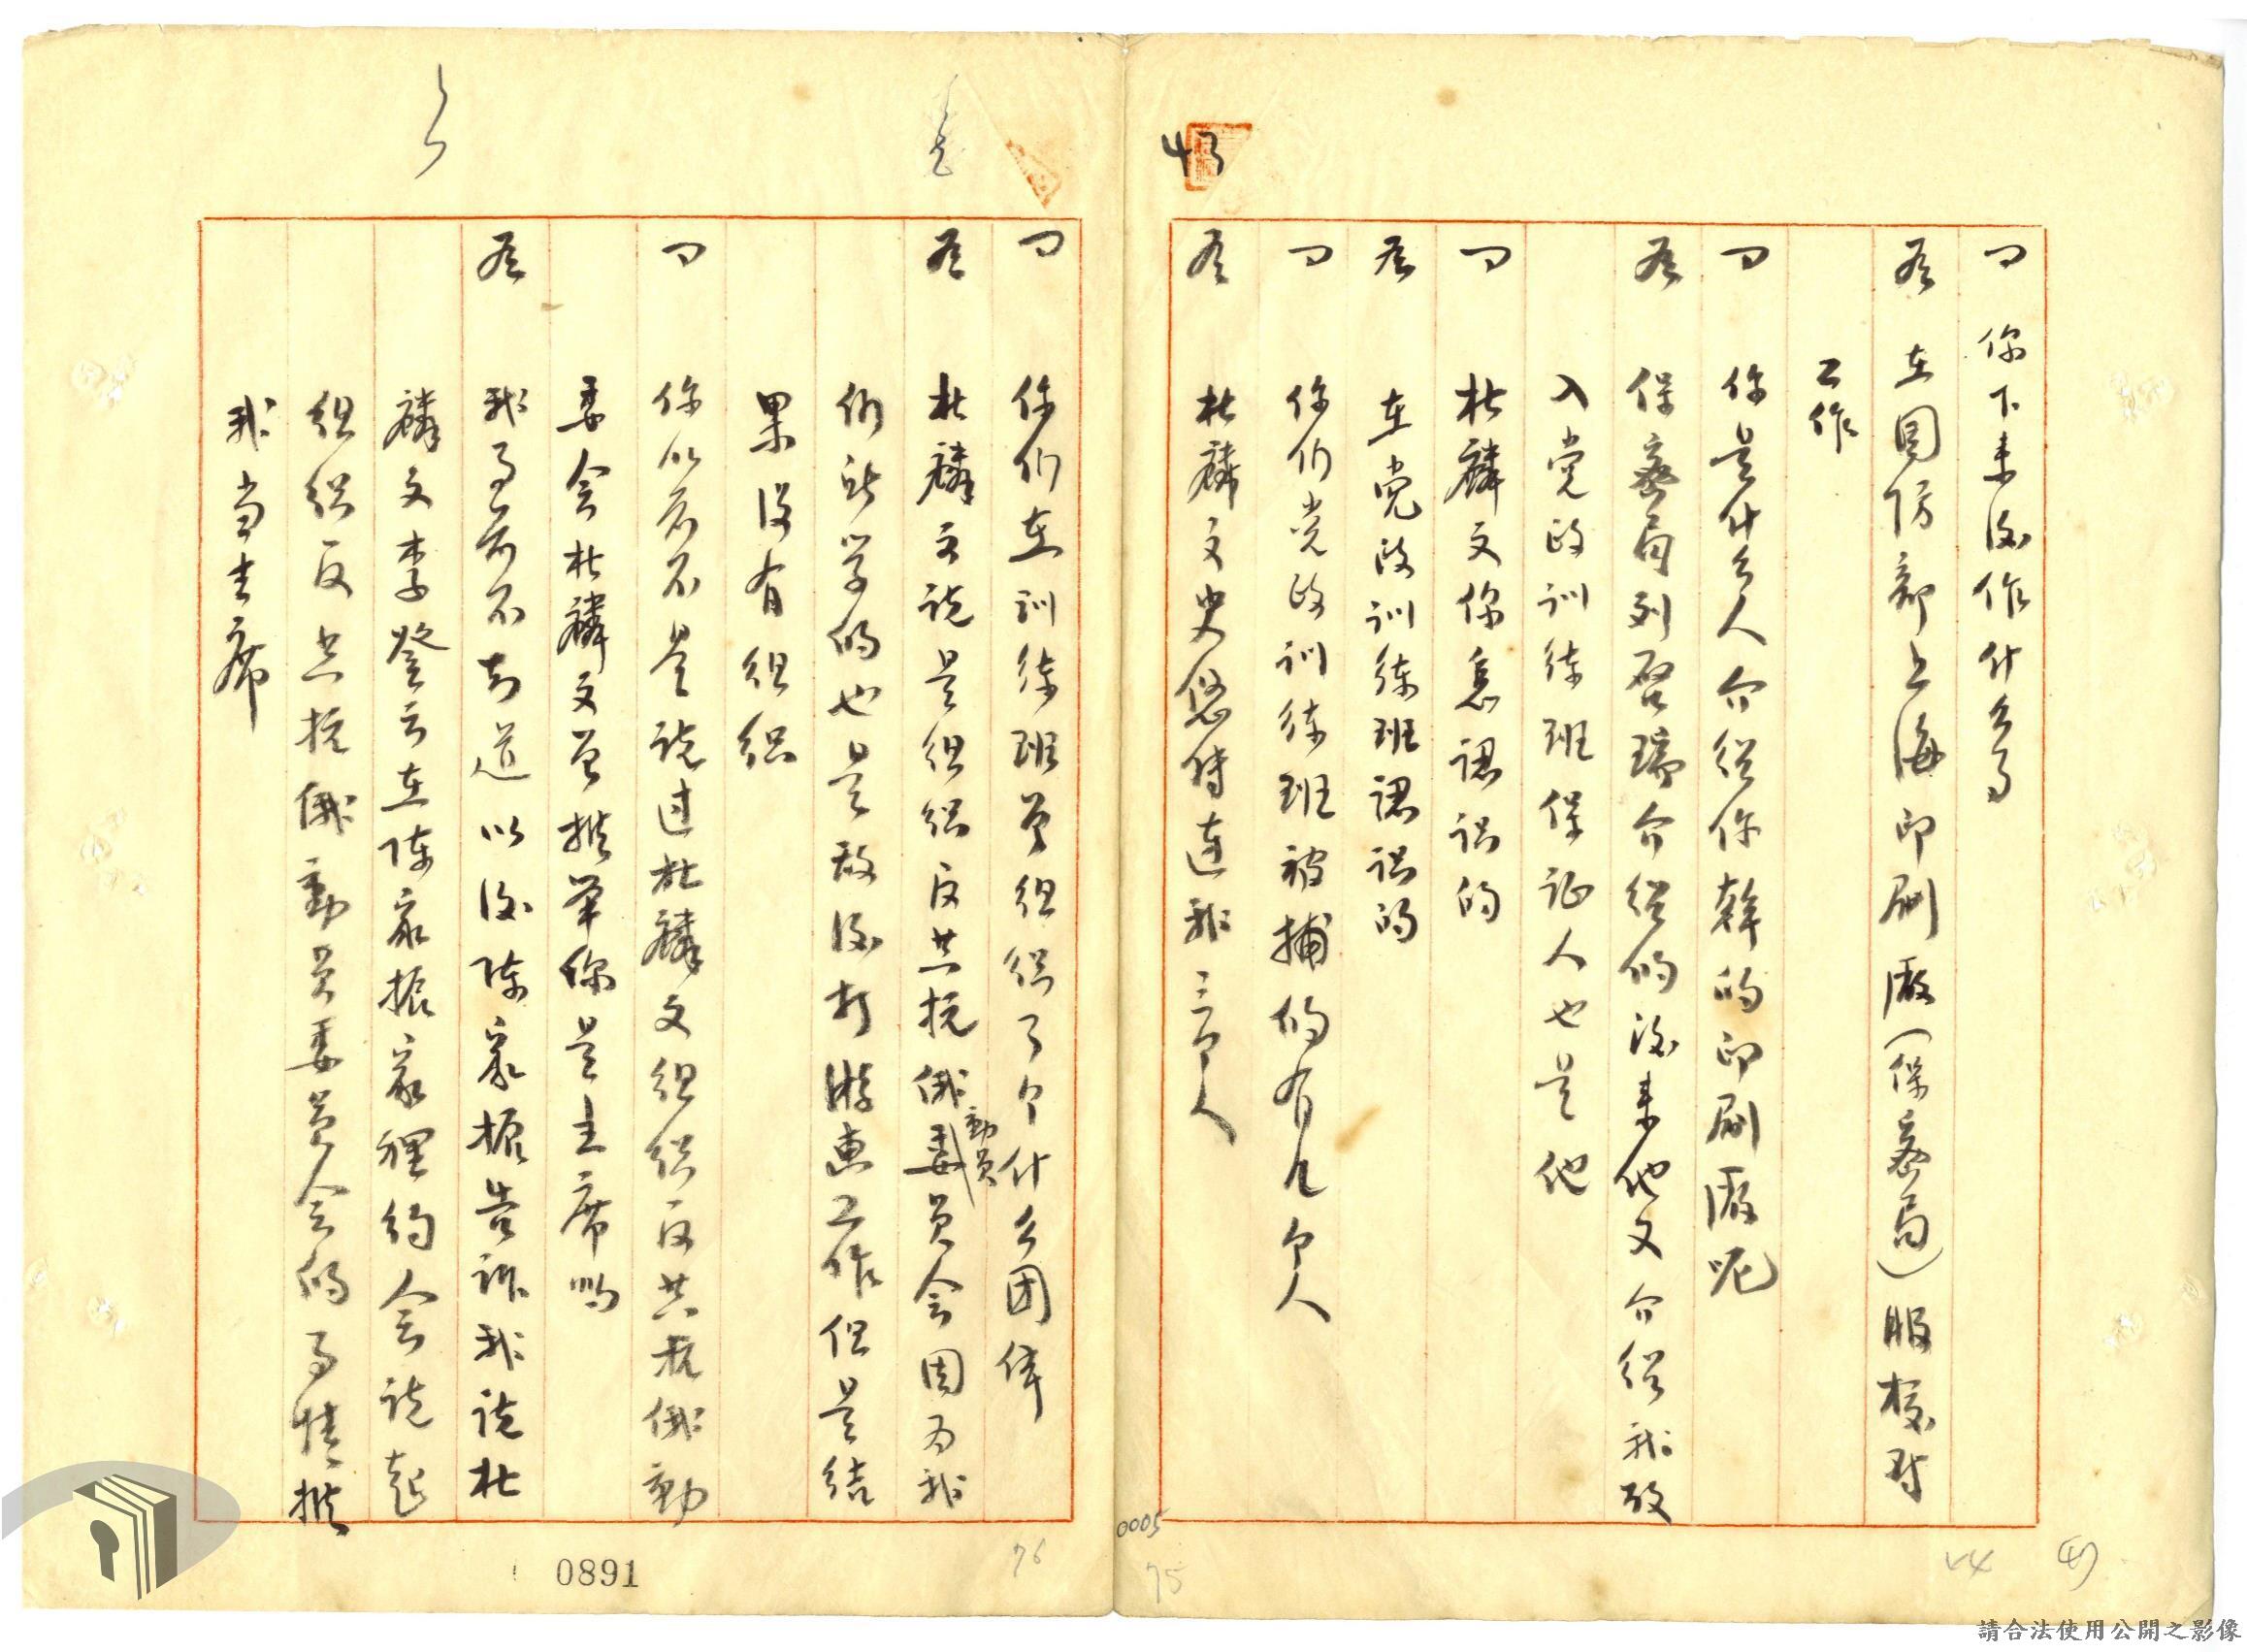 43
问 你下来後作什么事
答 在国防部上海印刷廠(保密局)服校对
工作
问 你是什么人介绍你幹的印刷廠呢
答 保密局列啓瑞介绍的後来他又介绍我考
入党政训练班保证人也是他
问 杜麟文你怎認识的
答 在党政训练班認识的
问 你们党政训练班被捕的有几个人
答 杜麟文史悠特連我三个人
0005
75
44
问 你们在训练班曾组织了个什么团体
答 杜麟文说是组织反共抗俄動員委員会因为我
们所学的也是敌後打游击工作但是结
果没有组织
问 你以前不是说过杜麟文组织反共抗俄動
委会杜麟文曾推举你是主席吗
答 我事前不知道以後陈家振告诉我说杜
麟文李登云在陈家振家裡约会说起
组织反共抗俄動员委员会的事情推
我当主席
76
0891
請合法使用公開之影像